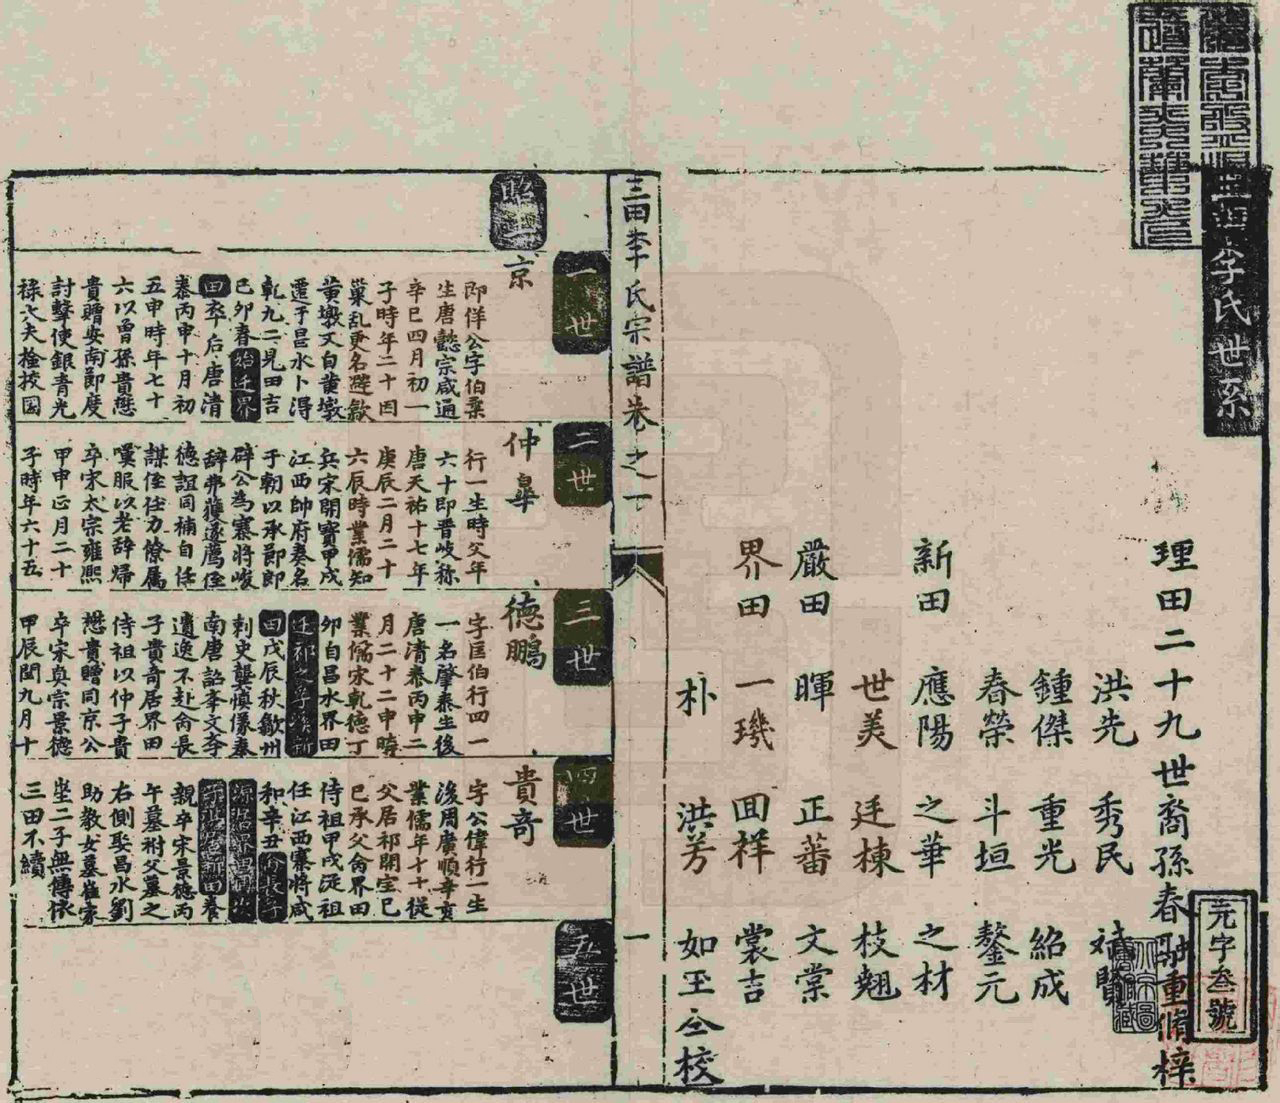 三田李氏世系
元字叁號
理田二十九世裔孫春 重脩梓
洪先 秀民
鍾傑 重光 紹成
春榮 斗垣 鏊元
新田 應陽 之華 之材
世美 廷棟 枝翹
嚴田 暉 正蕃 文棠
界田 一璣 囬祥 裳吉
朴 洪芳 如玉 仝校
三田李氏宗譜卷之一
一
一世
京
即佯公字伯粟
生唐懿宗咸通
辛巳四月初一
子時年二十因
巢亂更名避歙
黄墩又自黄墩
遷于昌水卜得
乾九二見田吉
己卯春始迁界
田卒后唐清
泰丙申十月初
五申時年七十
六以曾孫貴懋
貴贈安南節度
討擊使銀青光
祿大夫檢挍國
二世
仲臯
行一生時父年
六十即晋岐称
唐天祐十七年
庚辰二月二十
六辰時業儒知
兵宋開寳甲戌
江西帥府奏名
于朝以承節郎
辟公為寨將峻
辭弗獲遂薦侄
德誼同補自任
謀侄任力僚属
嘆服以老辞歸
卒宋太宗雍熙
甲申正月二十
子時年六十五
三世
德鵬
字匡伯行四一
一名肇泰生後
唐清泰丙申二
月二十二申時
業儒宋乾德丁
卯自昌水界田
迁祁之孚溪新
田戊辰秋歙州
刺史龔慎儀奏
南唐詔李文李
遺逸不赴侖長
子貴奇居界田
侍祖以仲子貴
懋貴贈同京公
卒宋真宗景德
甲辰閏九月十
四世
貴奇
字公偉行一生
後周廣順辛亥
業儒年十七從
父居祁開宝己
巳承父侖界田
侍祖甲戌從祖
任江西寨將咸
和辛丑
親卒宋景德丙
午墓祔父墓之
右側娶昌水劉
助教女墓崔家
坐二子無傳依
三田不續
五世